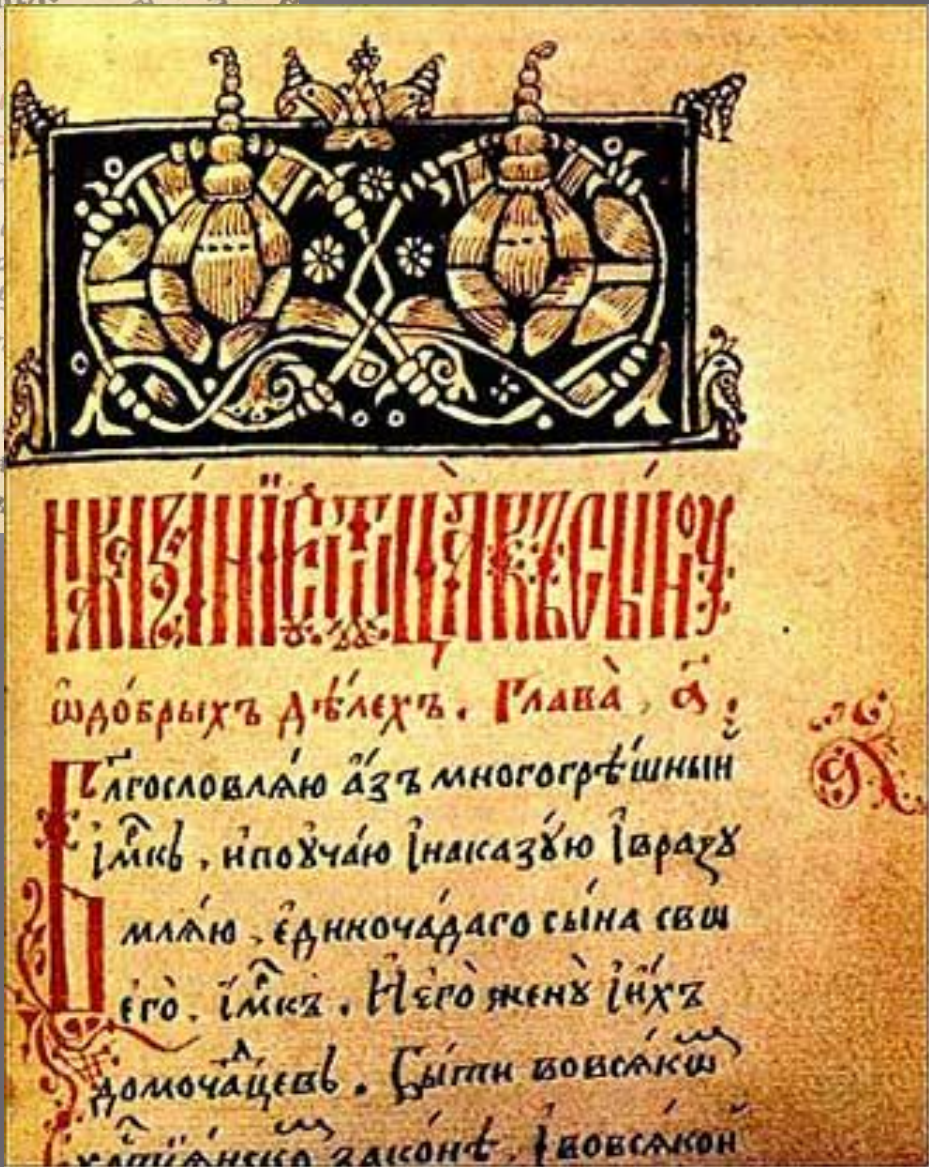 НАКАЗАНЇЕ ѾТЦА КЪСЫНОУ
ѡдо́брыхъ дѣ́лехъ. Глава̀, а҃.
Блгⷭ҇ословлѧ́ю а́зъ многогрѣ́шныи
імⷬ҇къ, ипоꙋча́ю інаказꙋ́ю івразꙋ
млѧ́ю, єдиночѧ́даго сы́на свѡ
его̀. їмⷬ҇къ. Иего̀ женꙋ̀ їи́хъ
домочаⷣ҇цевъ. Бы́ти вовсѧ́кѡⷨ
хрⷭ҇тїѧ́нскоⷨ зако́нѣ, івовсѧ́кои